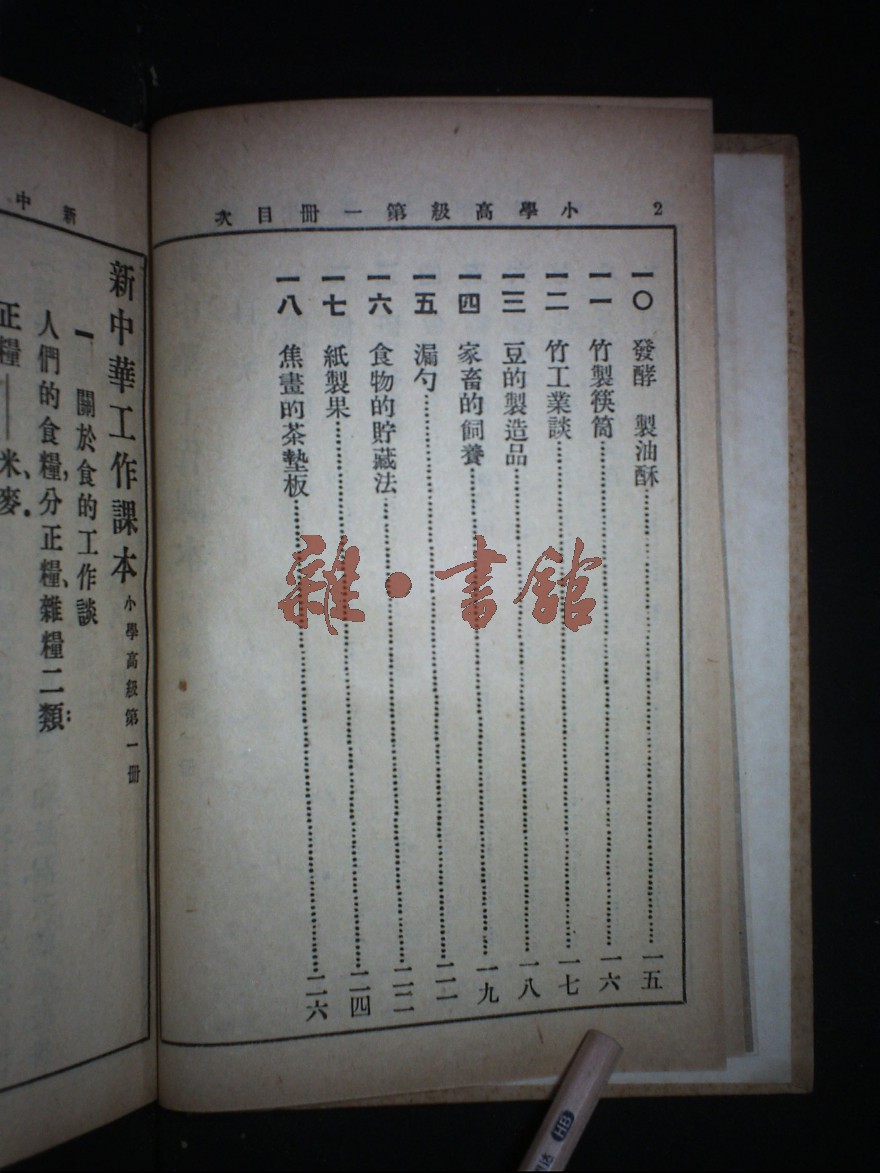 2 小學高級第一冊目次
一〇 發酵 製油酥……一五
一一 竹製筷筒……一六
一二 竹工業談……一七
一三 豆的製造品……一八
一四 家畜的飼養……一九
一五 漏勺……二一
一六 食物的貯藏法……二二
一七 紙製果……二四
一八 焦畫的茶墊板……二六
新中
新中華工作課本 小學高級第一冊
一 關於食的工作談
人們的食糧,分正糧、雜糧二類:
正糧——米、麥。
雜·書館
HB